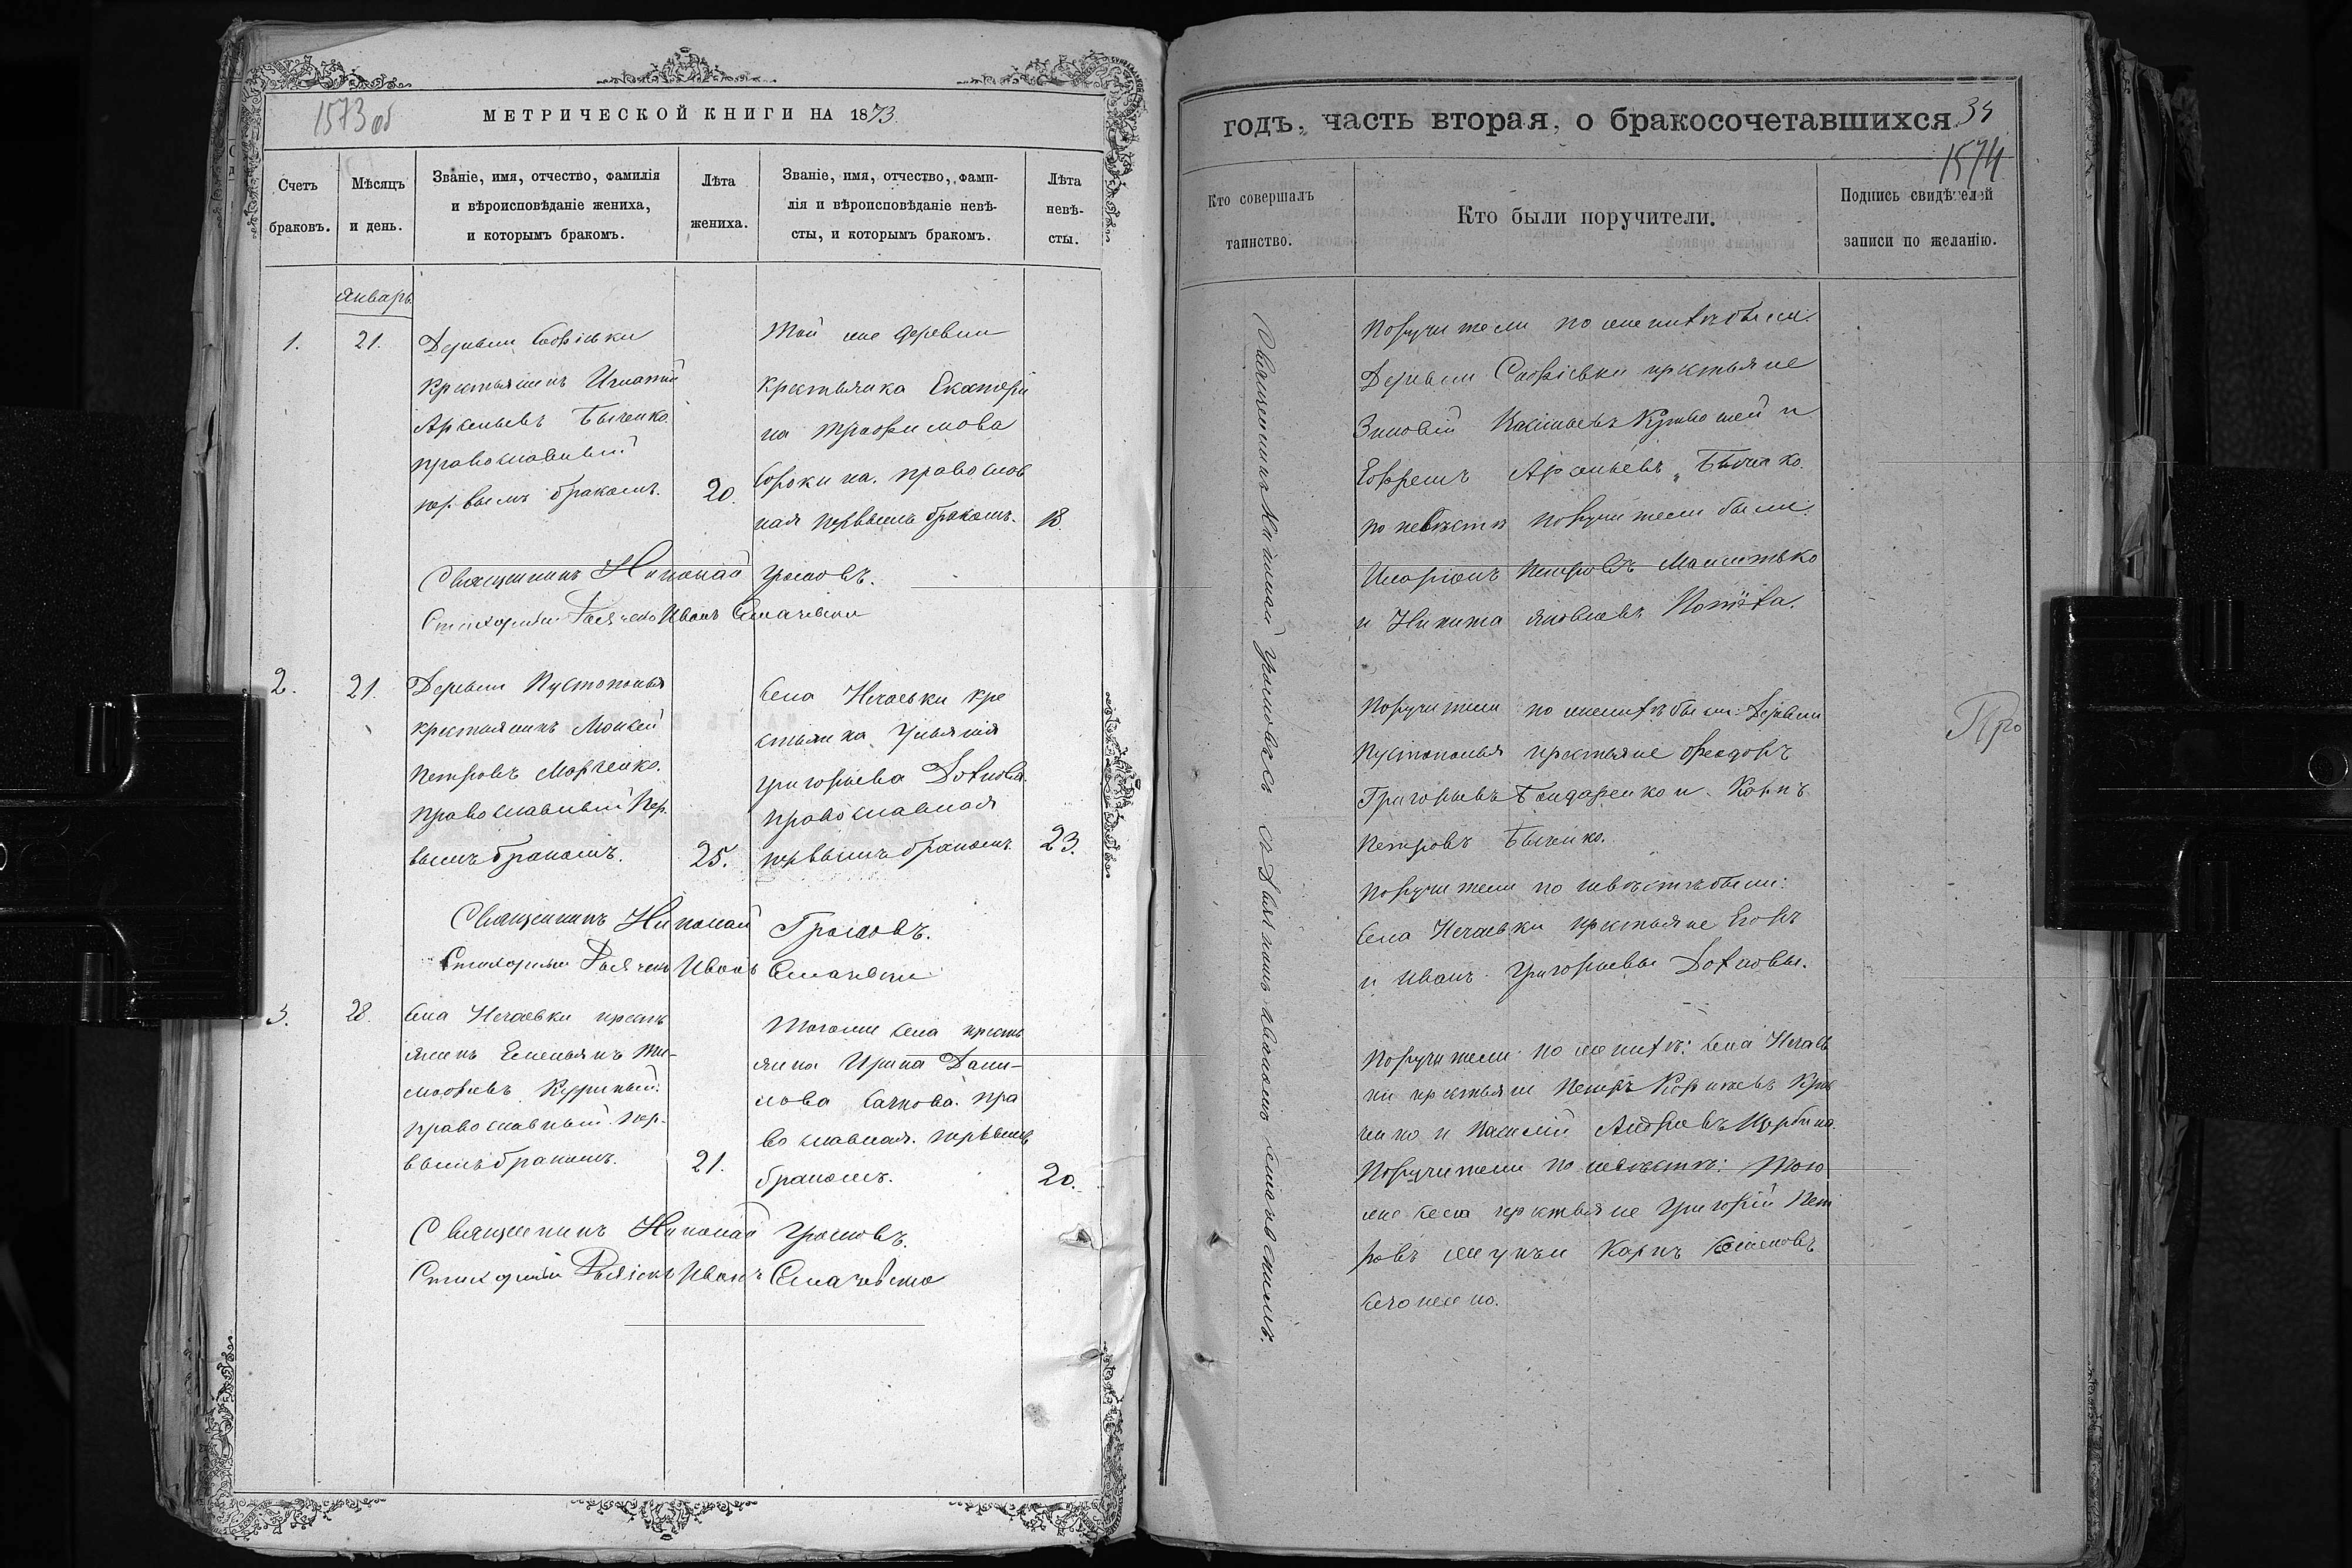 1573 об
МЕТРИЧЕСКОЙ КНИГИ НА 1873.
Счетъ браковъ.
Мѣсяцъ и день.
Званіе, имя, отчество, фамилія
и вѣроисповѣданіе жениха,
и которымъ бракомъ.
Лѣта жениха.
Званіе, имя, отчество, фами-
лія и вѣроисповѣданіе невѣ-
сты, и которымъ бракомъ.
Лѣта невѣ-
сты.
Январь
1.
21.
Деревни Софіевки
крестьянинъ Игнатій
Арсеньевъ Быченко
православный
первымъ бракомъ.
20.
Той же деревни
крестьянка Екатери
на Трофимова
Сорокина. православ
ная первымъ бракомъ.
18.
Священникъ Николай Громовъ.
Стихарный Дьячекъ Иванъ
2.
21.
Деревни Пустополья
крестьянинъ Моисей
Петровъ Марченко.
православный пер
вымъ бракомъ.
25.
Села Нечаевки кре
стьянка Ульянія
Григорьева
православная
первымъ бракомъ.
23.
Священникъ Николай Громовъ.
Стихарный Дьячекъ Иванъ
3.
28.
Села Нечаевки кресть
янинъ Емельянъ Ти-
мофѣевъ
православный. пер-
вымъ бракомъ.
21.
Тогоже села кресть
янка Ирина Дани-
лова Сачкова. пра
вославная. первымъ
бракомъ.
20.
Священникъ Николай Громовъ.
Стихарный Дьячекъ Иванъ
годъ, часть вторая, о бракосочетавшихся
35
1574
Кто совершалъ таинство.
Кто были поручители.
Подпись свидѣтелей
записи по желанію.
Священникъ Николай Громовъ съ Дьячкомъ Иваномъ
Поручители по женихѣ были:
Деревни Софіевки крестьяне
Зиновій и
Ефремъ Арсеньевъ Быченко.
по невѣстѣ поручители были:
Иларіонъ Петровъ
и Никита Яковлевъ
Поручители по женихѣ были: Деревни
Пустополья крестьяне Феодоръ
Григорьевъ Бондаренко и Карпъ
Петровъ Быченко.
Поручители по невѣстѣ были:
Села Нечаевки крестьяне Егоръ
и Иванъ Григорьевы
Поручители по женихѣ: Села Нечаев
ки крестьяне Петръ
и Василій Андреевъ Щербина.
Поручители по невѣстѣ: Того
же села крестьяне Григорій Пет
ровъ Карпъ
Про